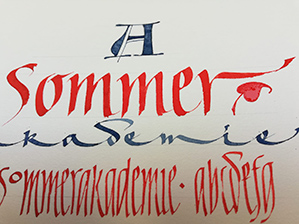 A
Sommer
akademie
Sommerakademie · abcdefg